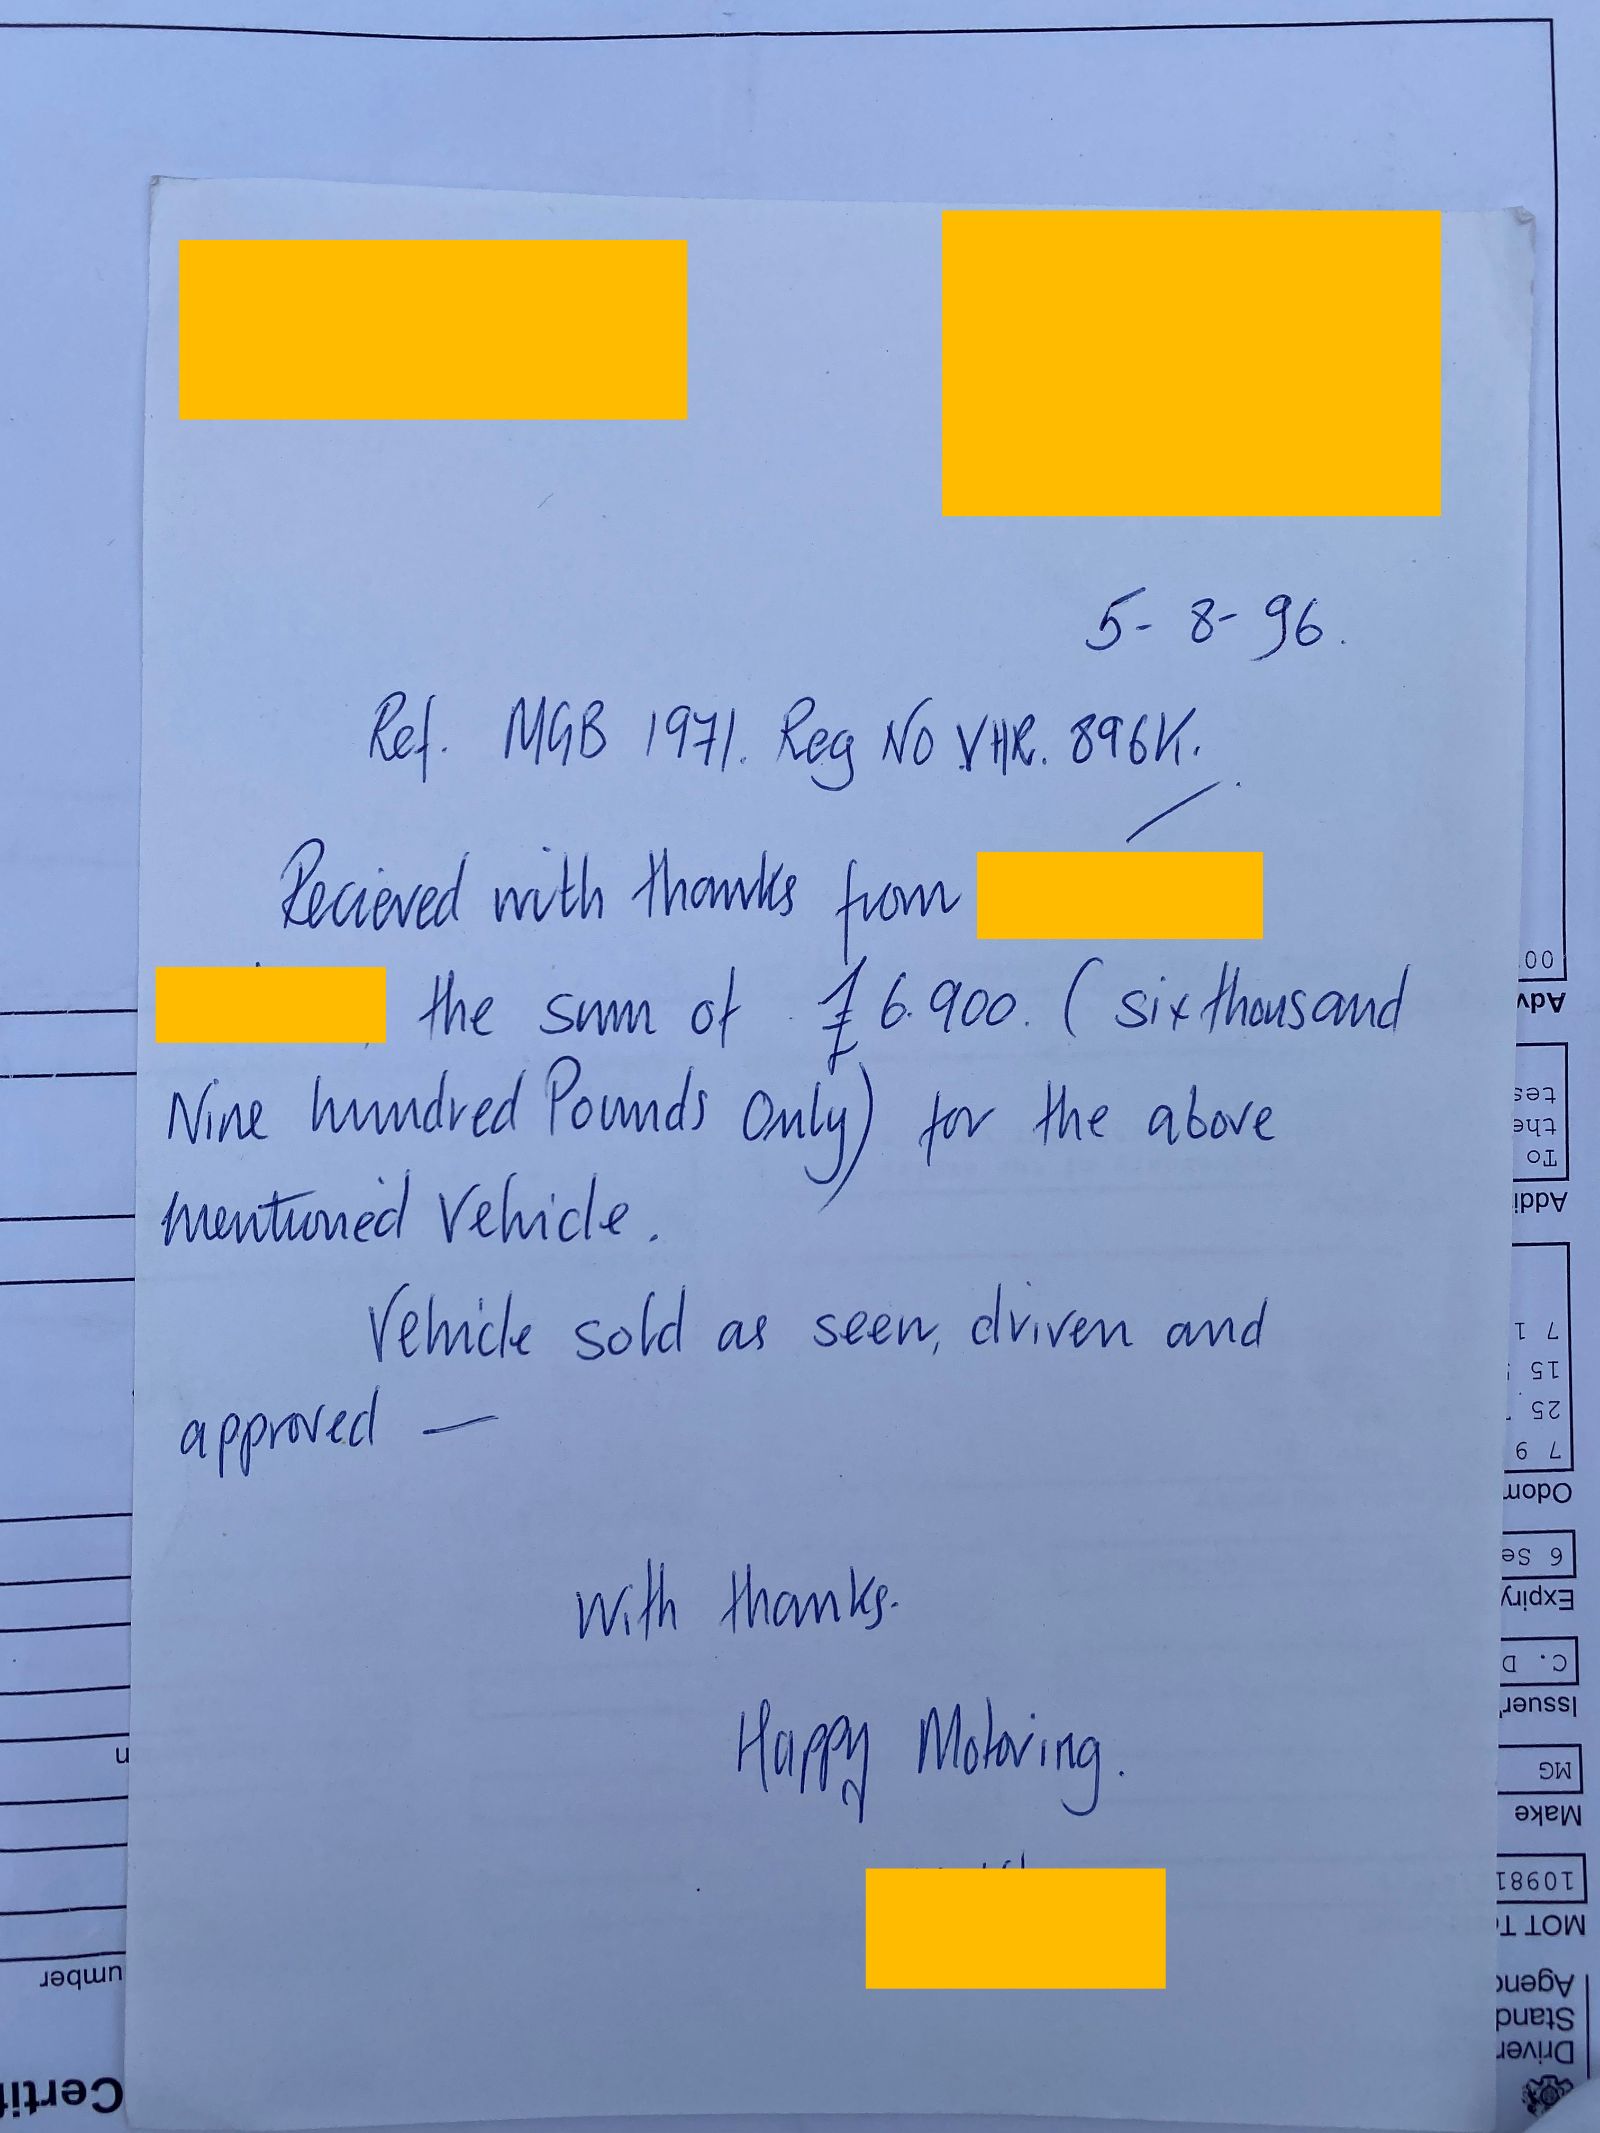 5-8-96.
Ref. MGB 1971. Reg No VHR. 896K.
Recieved with thanks from
the sum of £6.900. (six thousand
Nine hundred Pounds Only) for the above
mentioned Vehicle.
Vehicle sold as seen, driven and
approved —
With thanks.
Happy Motoring.
00
Adv
tes
the
To
Addi
7 1
15
25
7 9
Odom
6 Se
Expiry
C. D
Issuer'
MG
Make
10981
MOT T
Agenc
Stand
Driver
n
umber
Certif